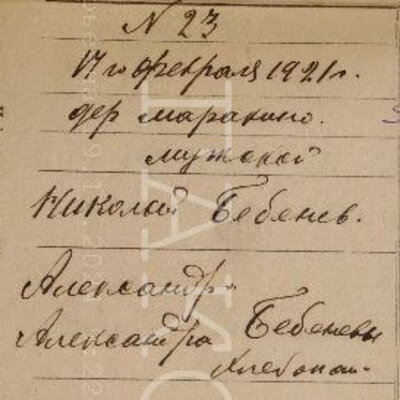 N 23
17го февраля 1921г.
дер маракино.
мужской
Николай Бебенев.
Александр
Александра Бебеневы
хлебопаш-